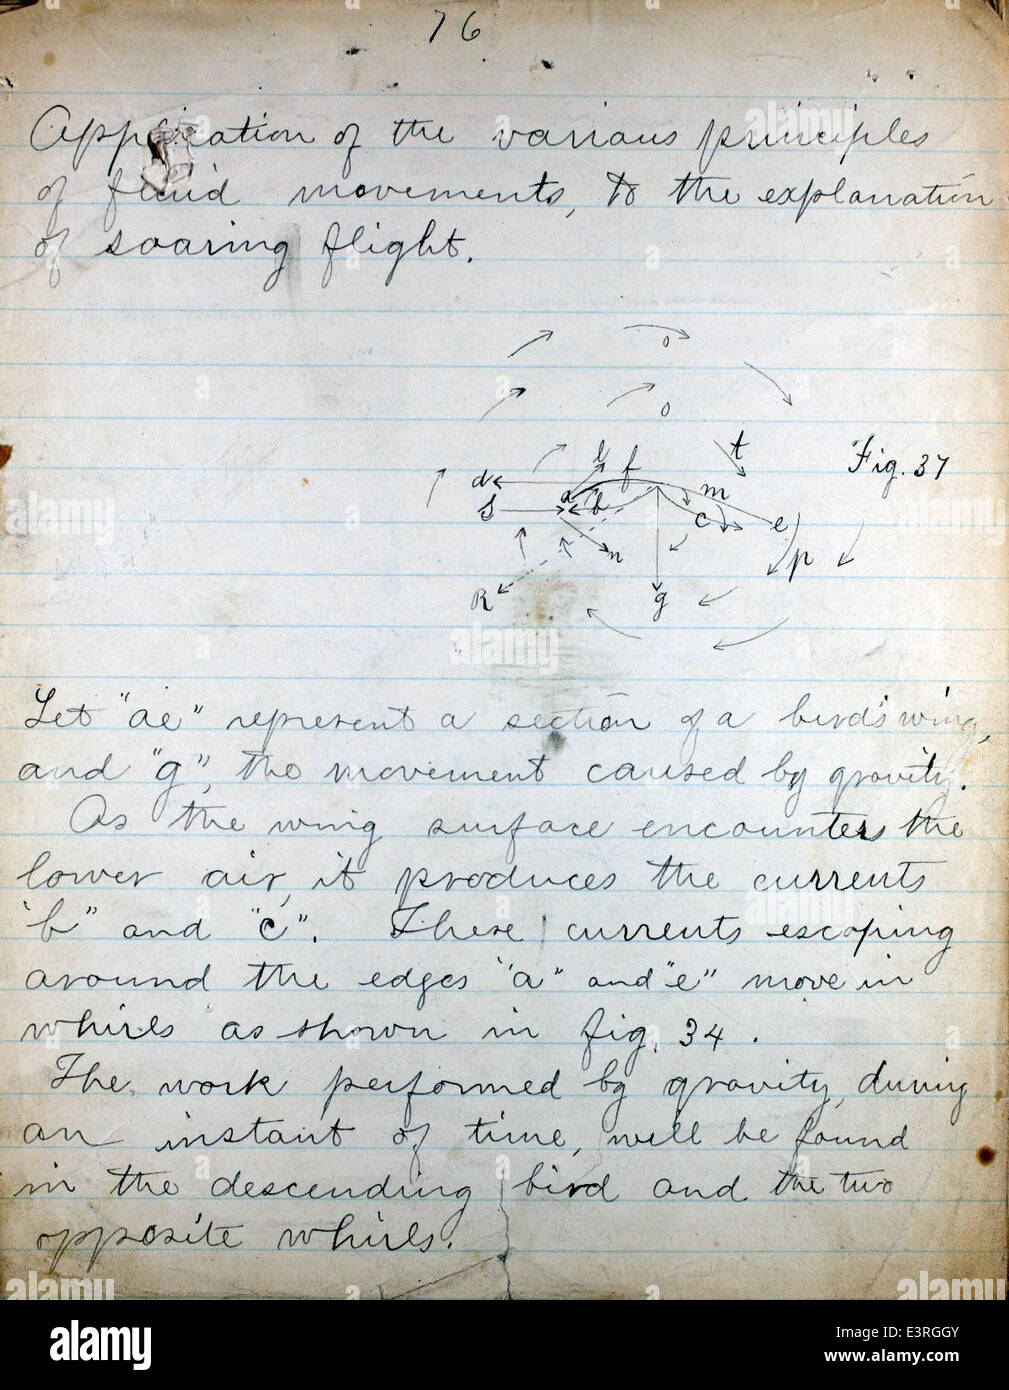 76
Application of the various principles
of fluid movements, to the explanation
of soaring flight.
o
o
t
Fig. 37
l f
d
a m
S b c e
n p
R g
Let "ae" represent a section of a bird's wing,
and "g", the movement caused by gravity.
As the wing surface encounters the
lower air, it produces the currents
"b" and "c". These currents escaping
around the edges "a" and "e" move in
whirls as shown in fig. 34.
The work performed by gravity, during
an instant of time, will be found
in the descending bird and the two
opposite whirls.
alamy
Image ID: E3RGGY
www.alamy.com